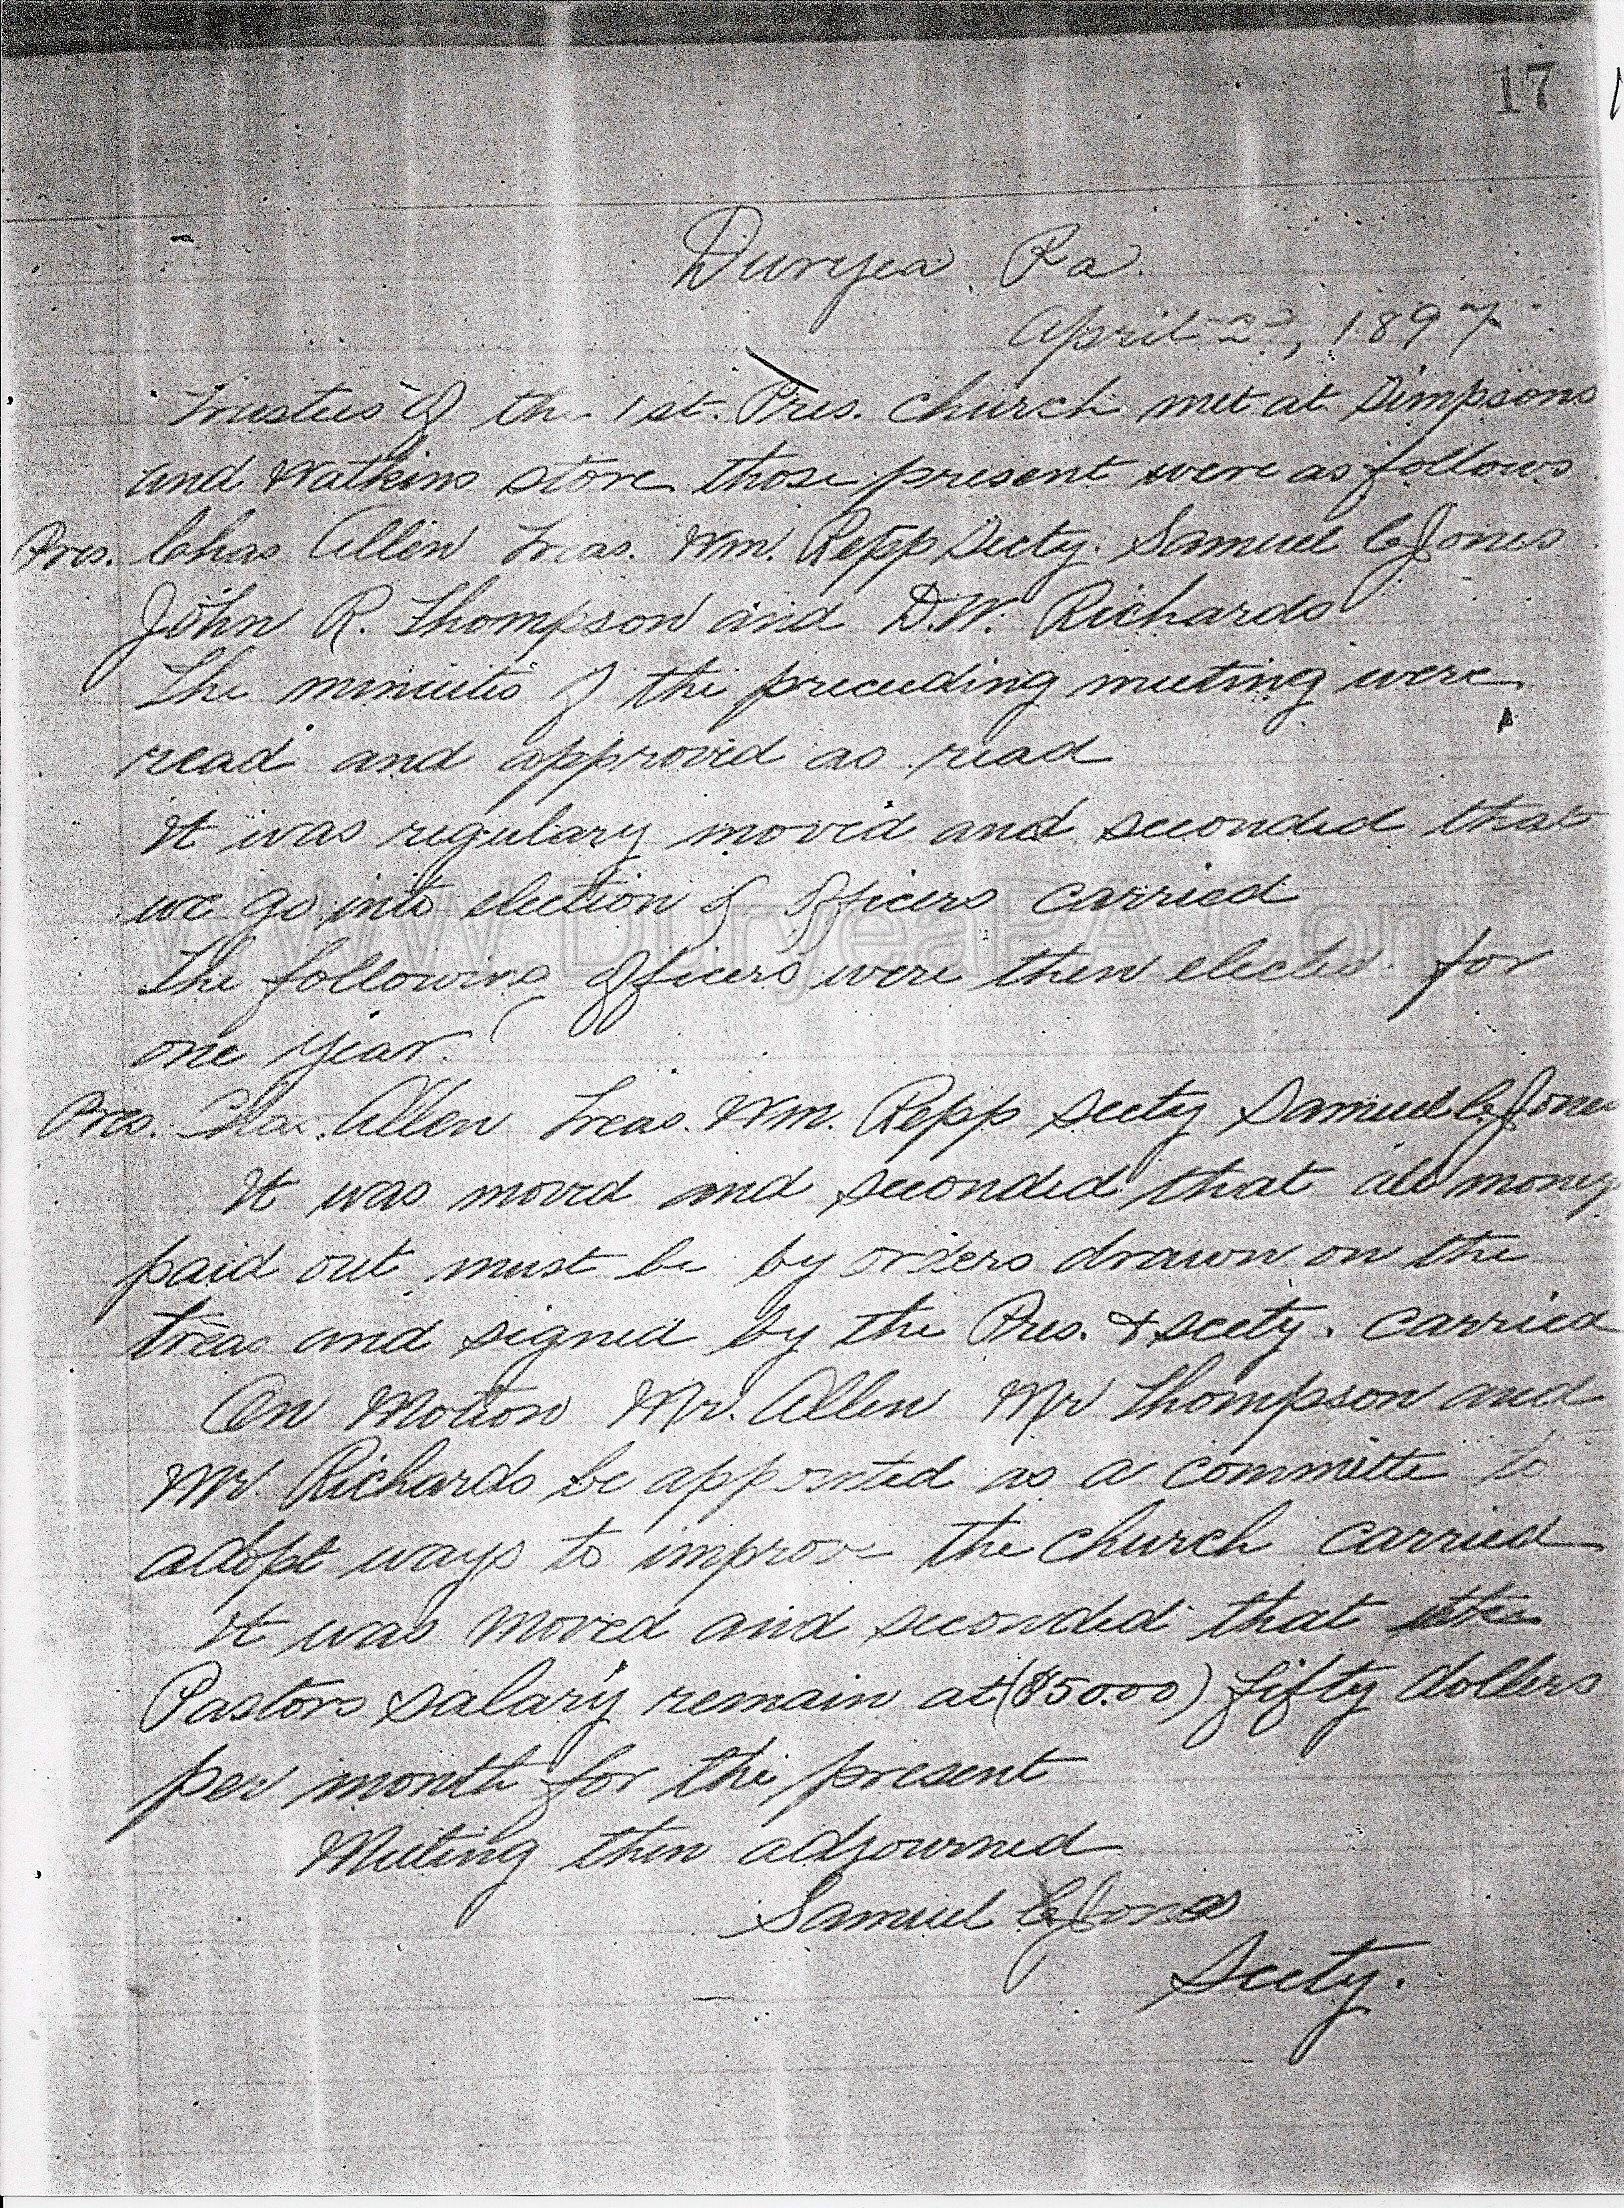 17
Duryea, Pa.
April 2, 1897
Trustees of the 1st. Pres. church met at Simpsons
and Watkins store those present were as follows
Pres. Chas Allen Treas. Wm. Repp Secty. Samuel C Jones
John R. Thompson and D.W. Richards
The minuits of the preceeding meeting were
read and approved as read
It was regulary moved and seconded that
we go into election of officers carried
www.DuryeaPA.com
The following officers were then elected for
one year.
Pres. Chas. Allen Treas. Wm. Repp Secty Samuel C. Jones
It was moved and seconded that all money
paid out must be by orders drawn on the
treas and signed by the Pres. & secty. carried
On Motion Mr. Allen Mr Thompson and
Mr. Richards be appointed as a committe to
adopt ways to improve the church carried
It was moved and seconded that the
Pastors salary remain at ($50.00) fifty dollers
per month for the present
Meeting then adjourned
Samuel C Jones
Secty.